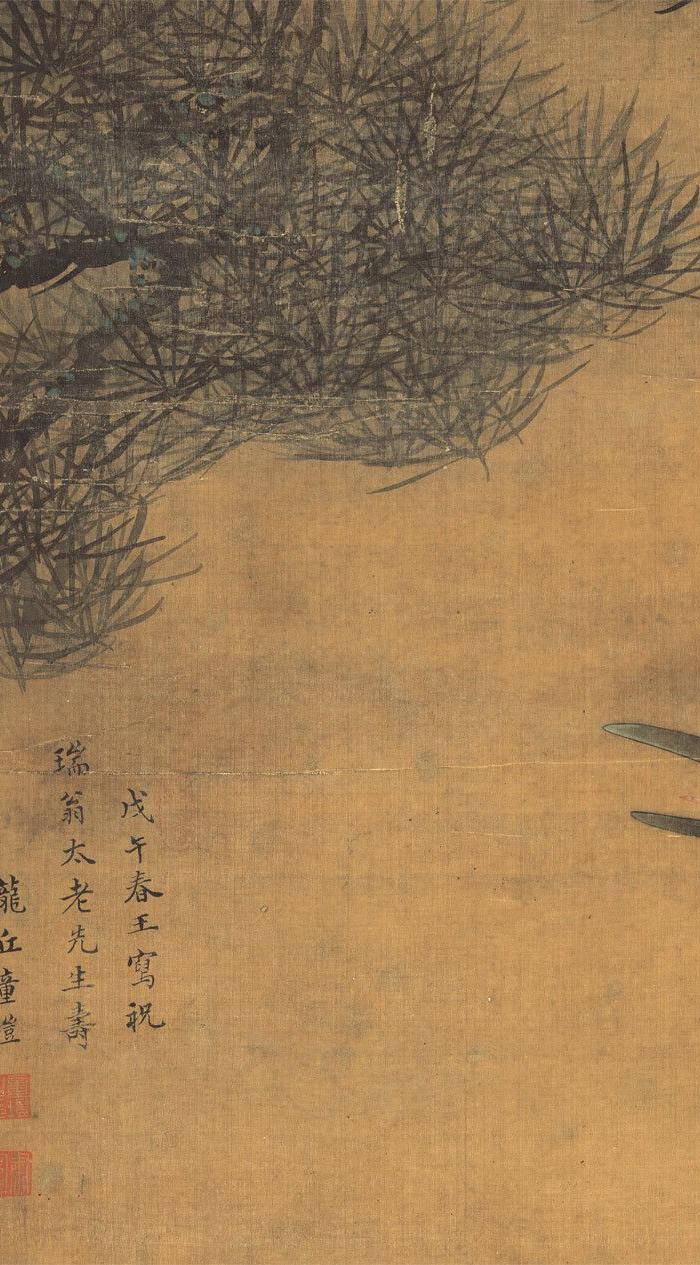 戊午春王寫祝
瑞翁太老先生壽
龍丘童塏